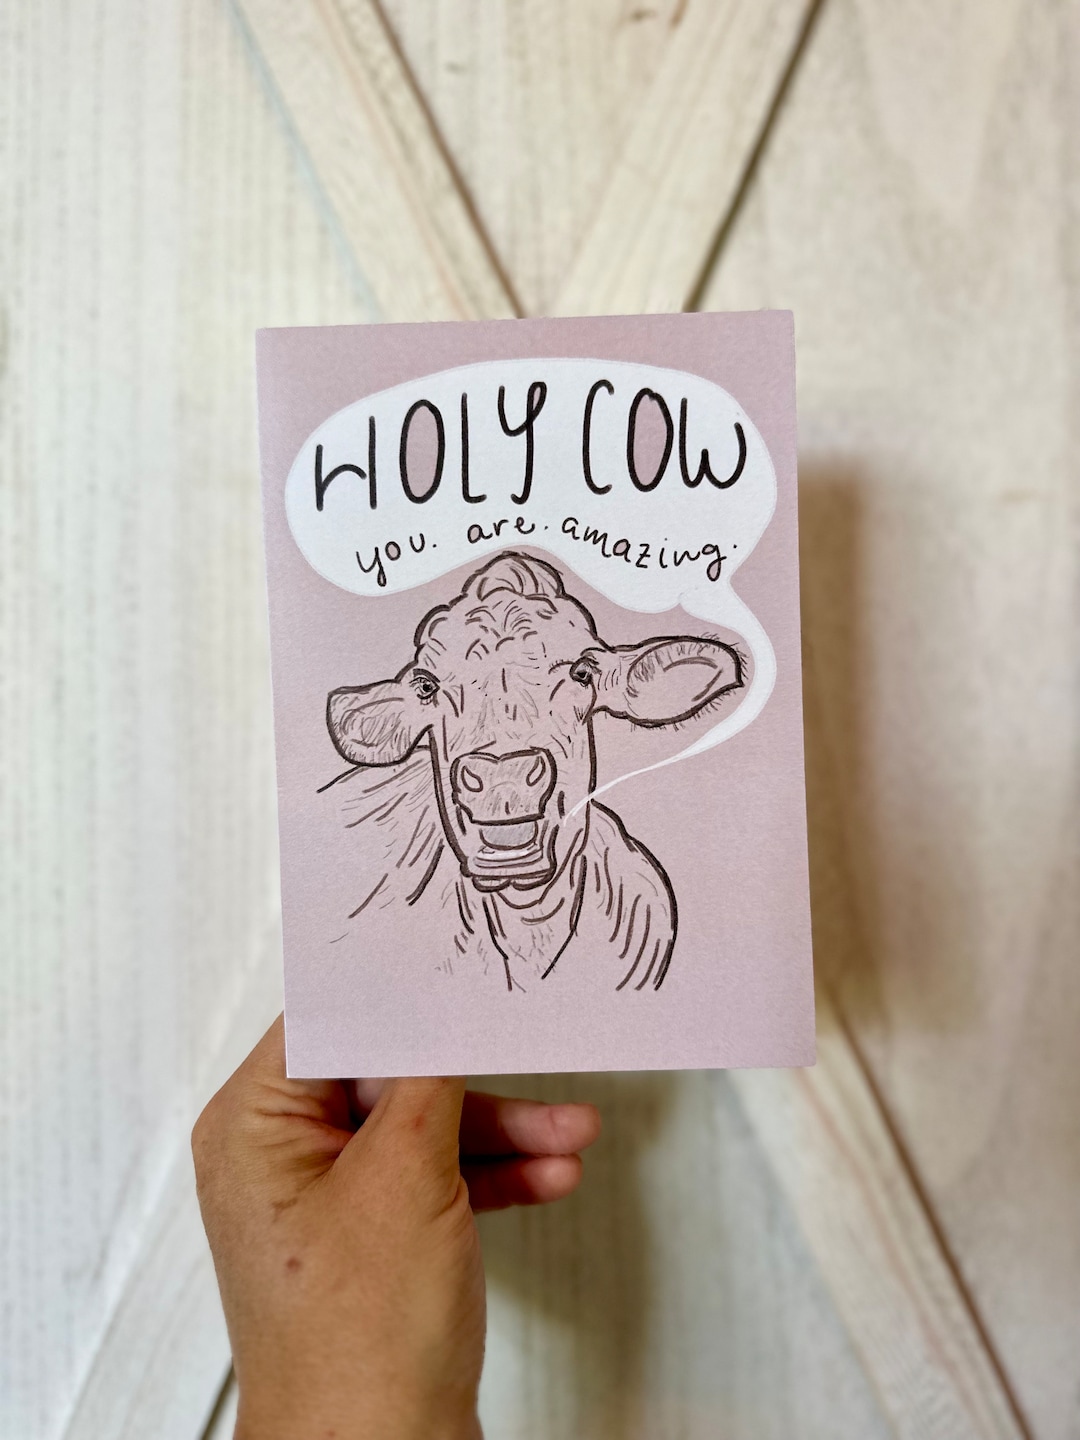 HOLY COW
you. are. amazing.